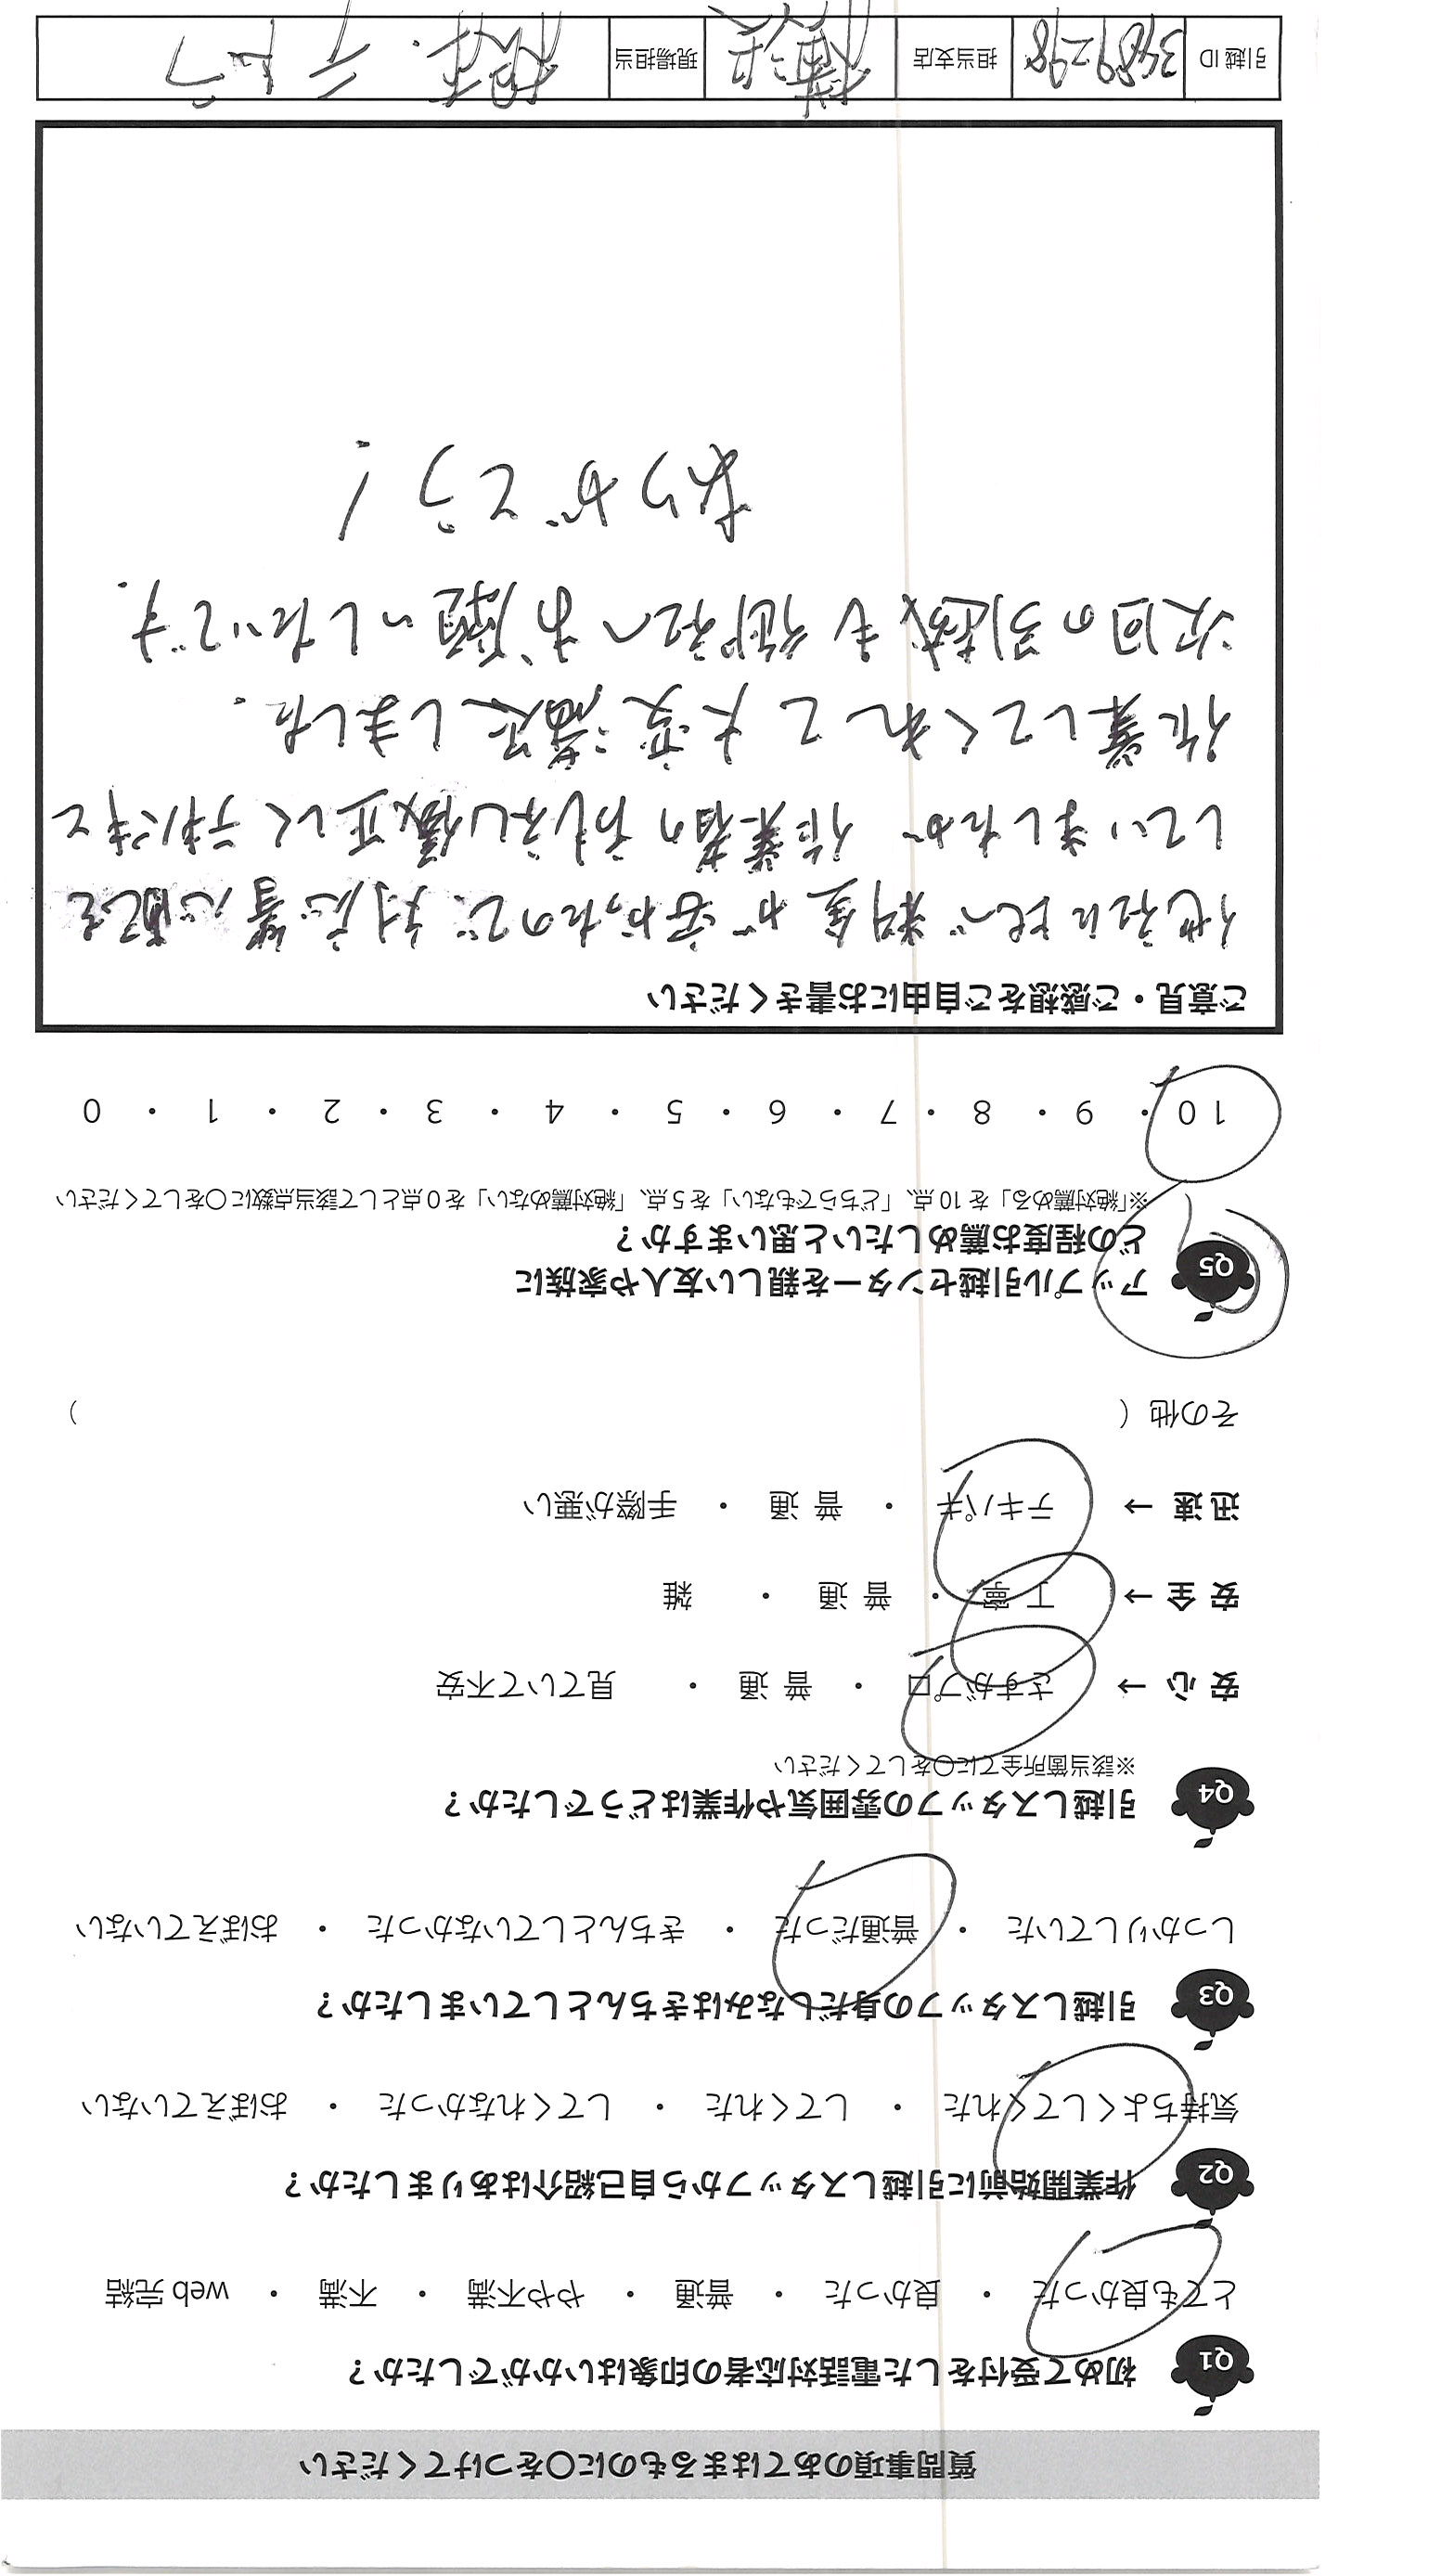 質問事項のあてはまるものに〇をつけてください
Q1 初めて受付をした電話対応者の印象はいかがでしたか？
とても良かった ・ 良かった ・ 普通 ・ やや不満 ・ 不満 ・ web 完結
Q2 作業開始前に引越しスタッフから自己紹介はありましたか？
気持ちよくしてくれた ・ してくれた ・ してくれなかった ・ おぼえていない
Q3 引越しスタッフの身だしなみはきちんとしていましたか？
しっかりしていた ・ 普通だった ・ きちんとしていなかった ・ おぼえていない
Q4 引越しスタッフの雰囲気や作業はどうでしたか？
※該当箇所全てに〇をしてください
安 心 → さすがプロ ・ 普 通 ・ 見ていて不安
安 全 → 丁 寧 ・ 普 通 ・ 雑
迅 速 → テキパキ ・ 普 通 ・ 手際が悪い
その他（ ）
Q5 アップル引越センターを親しい友人や家族に
どの程度お薦めしたいと思いますか？
※「絶対薦める」を 10 点、「どちらでもない」を 5 点、「絶対薦めない」を 0 点として該当点数に〇をしてください
10 ・ 9 ・ 8 ・ 7 ・ 6 ・ 5 ・ 4 ・ 3 ・ 2 ・ 1 ・ 0
ご意見・ご感想をご自由にお書きください
他社に比べ料金が安かったので、対応等心配を
していましたが 作業者の方も礼儀正しくテキパキと
作業してくれて 大変満足しました.
次回の引越も 御社へお願いしたいです.
ありがとう!
引越 ID 3489298 担当支店 横浜 現場担当